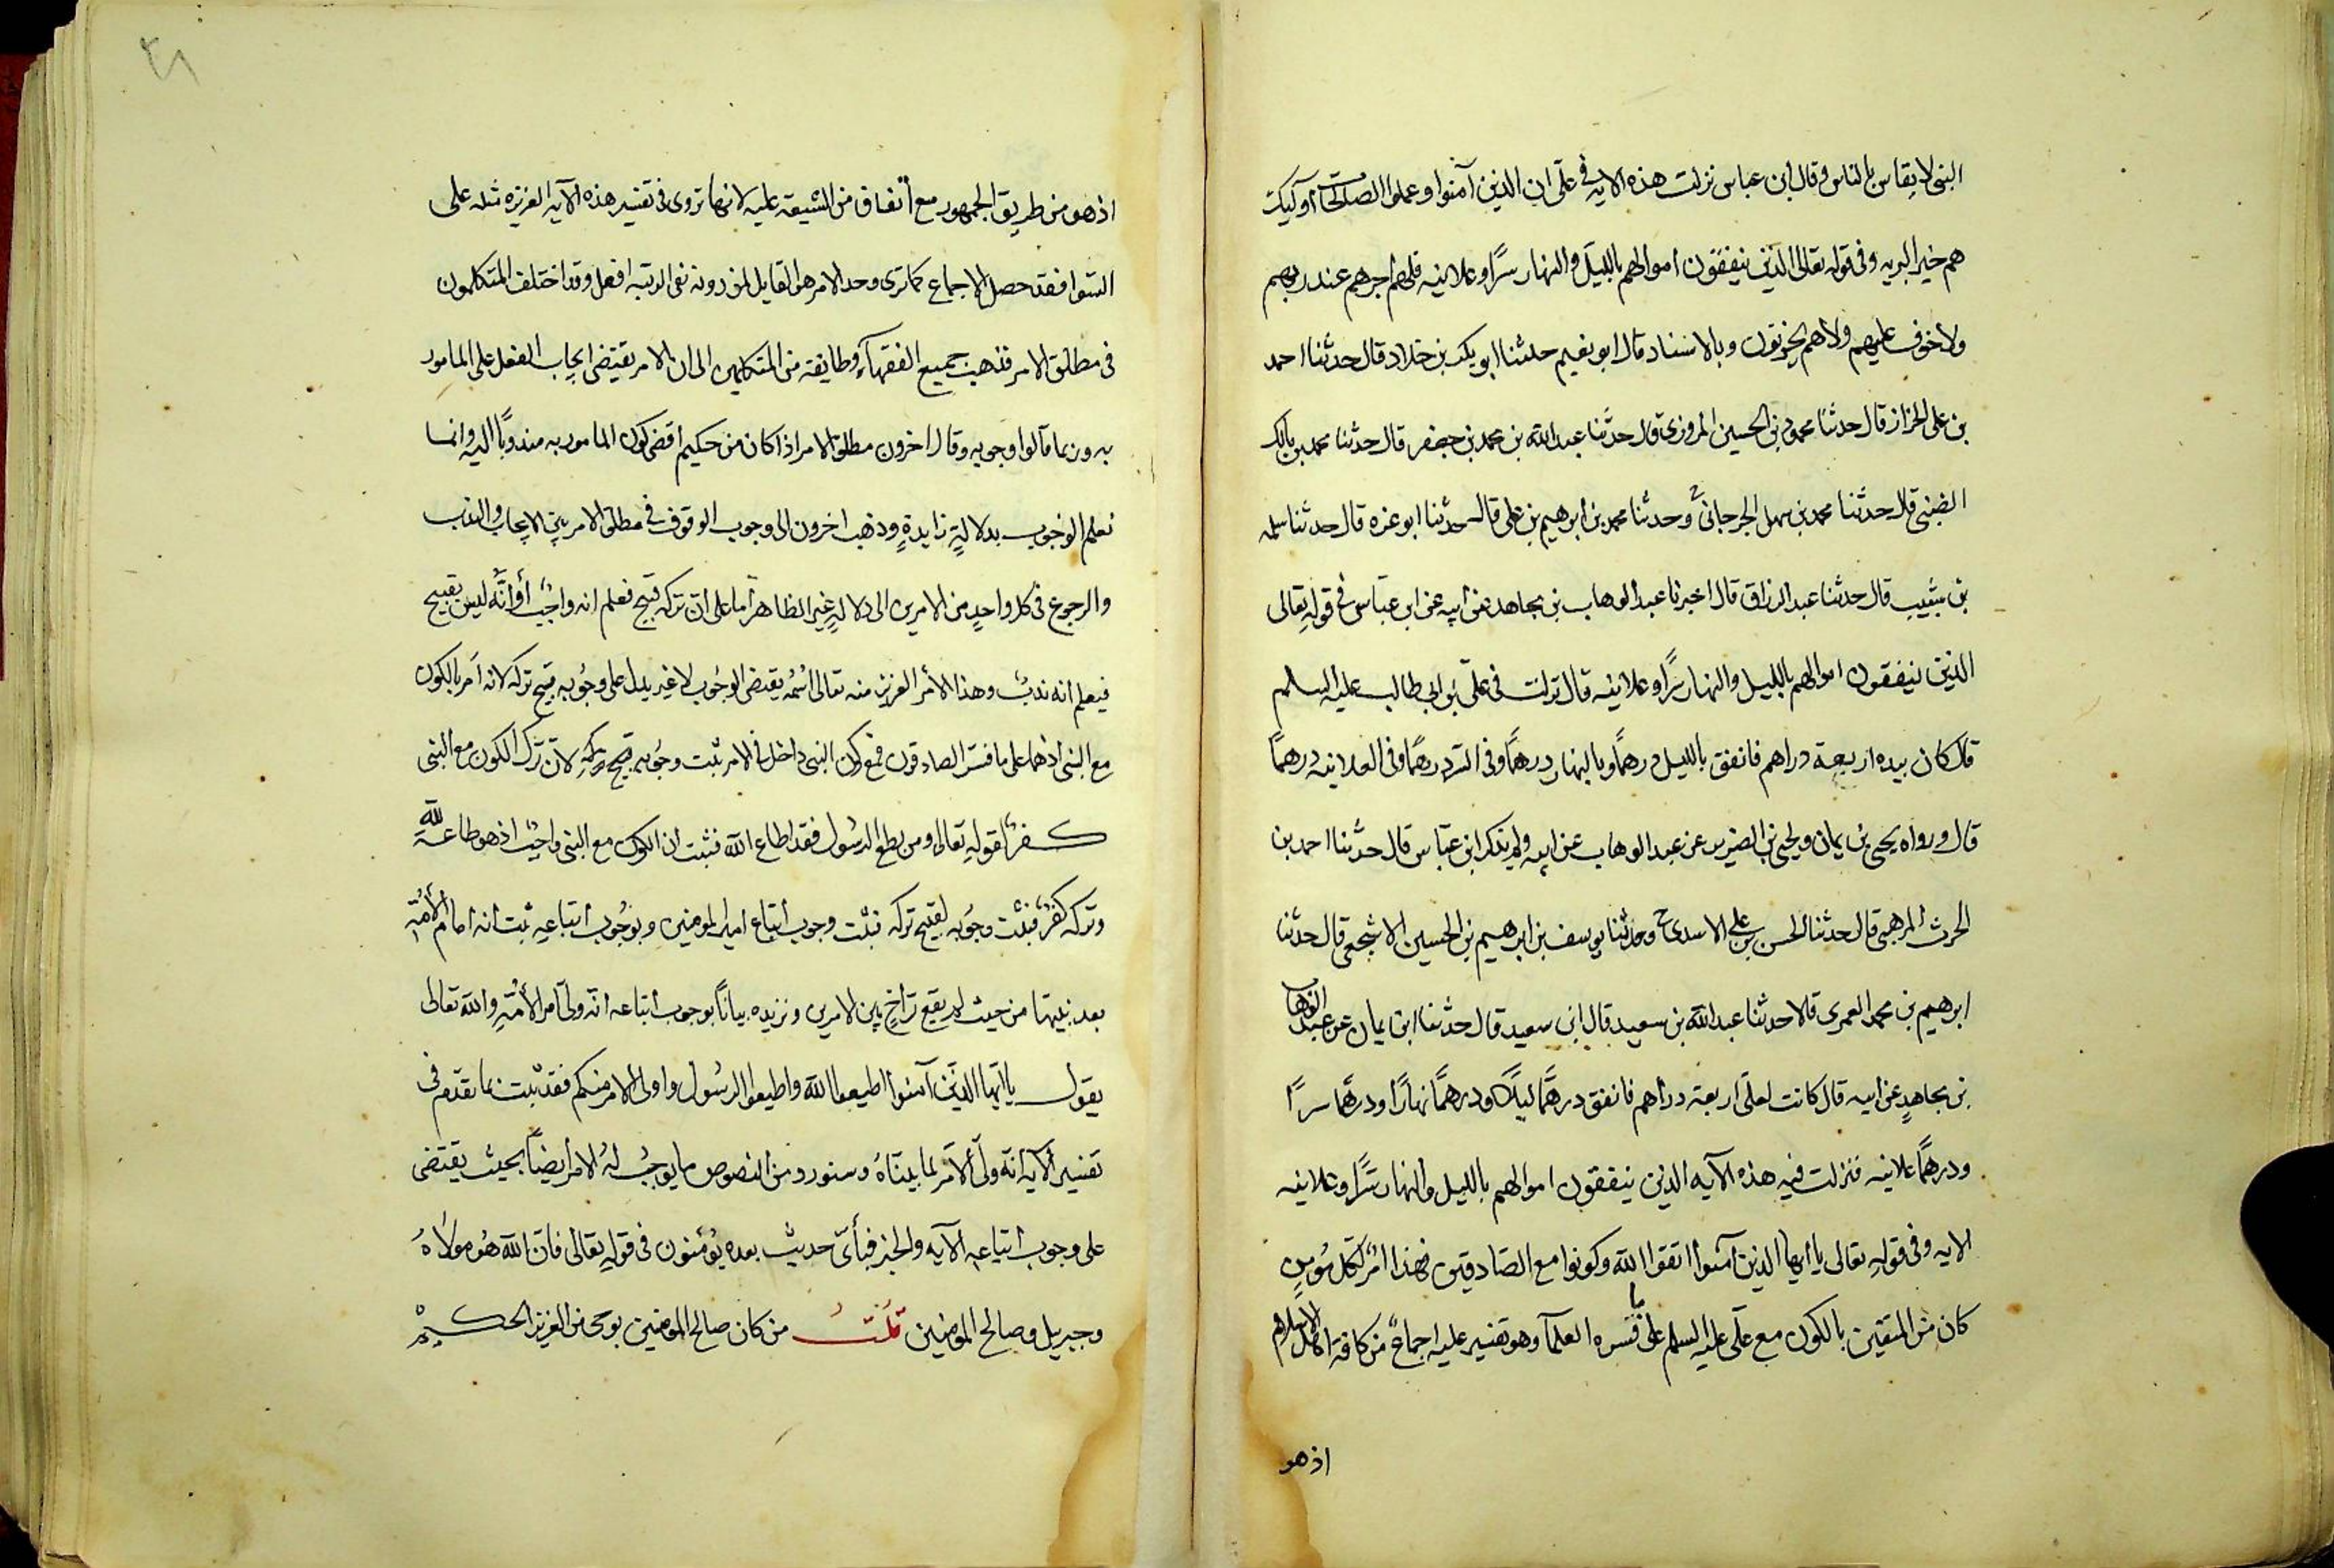 النبى لا يقاس بالناس وقال ابن عباس نزلت هذه الايه فى علىّ ان الذين آمنوا وعملوا الصلحٰت اوٓليك
هم خير البريه وفى قوله تعالى الذين ينفقون اموالهم بالليل والنهار سرًّا وعلانيه فلهم اجرهم عند ربهم
ولا خوف عليهم ولا هم يحزنون وبالاسناد قال ابو نعيم حدثنا ابو بكر بن خلاد قال حدثنا احمد
بن على الخزاز قال حدثنا محمود بن الحسين المروزى قال حدّثنا عبد الله بن محمد بن جعفر قال حدثنا محمد بن
الضبنى قال حدّثنا محمد بن سهل الجرجانى ح وحدثنا محمد بن ابرهيم بن على قال حدثنا ابو عزه قال حدثنا سلمه
بن شبيب قال حدثنا عبد الرزاق قال اخبرنا عبد الوهاب بن مجاهد عن ابيه عن ابن عبّاس فى قوله تعالى
الذين ينفقون اموالهم بالليل والنهار سرًّا وعلانيه قال نزلت فى علىّ بن ابى طالب عليه السلم
قال كان بيده اربعة دراهم فانفق بالليل درهمًا وبالنهار درهمًا وفى السّر درهمًا وفى العلانيه درهمًا
قال ورواه يحيى بن يمان ويحيى بن الضريس عن عبد الوهاب عن ابيه ولم يذكر ابن عبّاس قال حدّثنا احمد بن
الحرث المرهبى قال حدثنا الحسن بن على الاسدى ح وحدثنا يوسف بن ابرهيم بن الحسين الاشجعى قال حدثنا
ابرهيم بن محمد العمرى قالا حدثنا عبد الله بن سعيد قال ابى سعيد قال حدّثنا ابن يمان عن عبد الوهاب
بن مجاهدٍ عن ابيه قال كانت لعلىّ اربعة دراهم فانفق درهمًا ليلًا ودرهمًا نهارًا ودرهمًا سرًا
ودرهمًا علانيه فنزلت فيه هذه الآيه الذين ينفقون اموالهم بالليل والنهار سرًّا وعلانيه
الايه وفى قولهِ تعالى يا ايها الذين آمنوا اتقوا الله وكونوا مع الصّادقين فهذا امرٌ لكل مُومنٍ
كان من المتقين بالكون مع علىّ عليه السلم على ما فسّره العلمآ وهو تفسير عليه اجماعٌ من كافة اهل الاسلام
اذ هو
٢٨
اذ هو من طريق الجمهور مع اتفاق من الشيعة عليه لانها تروى فى تفسير هذه الآيه العزيزه مثله على
السّوا فقد حصل الاجماع كما ترى وحد الامر هو القايل لمن دونه فى الرتبه افعل وقد اختلف المتكلمون
فى مطلق الامر فذهب جميع الفقهآء وطايفة من المتكلمين الى ان الامر يقتضى ايجاب الفعل على المامور
به وربما قالوا وجوبه وقال اخرون مطلق الامر اذا كان من حكيم اقتضى كون المامور به مندوبًا اليه وانما
نعلم الوجوب بدلالةٍ زايدةٍ وذهب اخرون الى وجوب الوقوف فى مطلق الامر بين الايجاب والندب
والرجوع فى كل واحدٍ من الامرين الى دلالةٍ غير الظاهر اما على انّ تركه قبيح فنعلم انه واجبٌ أو أنّه ليس بقبيح
فيعلم انه ندبٌ وهذا الأمر العزيز منه تعالى اسمُهُ يقتضى الوجُوب لا غير يدل على وجُوبه قبح تركه لانه امر بالكون
مع النبى اذ هما على ما فسّر الصادقون فمع كون النبى داخل فى الامر ثبت وجُوبه بقبح تركهِ لانّ ترك الكون مع النبى
كفرٌ لقولهِ تعالى ومن يطع الرسُول فقد اطاع الله فثبت ان الكون مع النبى واجبٌ اذ هو طاعة للهِ
وتركه كفرٌ فثبت وجُوبه لقبح تركه فثبت وجوب اتباع امير المومنين وبوجُوب اتباعهِ ثبت انه امام الأمّة
بعد نبيّها من حيث لم يقع تراخٍ بين الامرين ونزيده بيانًا بوجوب اتباعه انّه ولىّ امر الأمّةِ والله تعالى
يقول يا ايّها الذين آمنوا اطيعوا الله واطيعوا الرسُول واولى الامر منكم فقد ثبت بما تقدّم فى
تفسير الآيه انّه ولى الأمر لما بيناهُ وسنورد من النصوص ما يوجبُ لهُ الامر ايضاً بحيث يقتضى
على وجوب اتباعهِ الآيه والخبر فبأىّ حديثٍ بعده يُؤمنون فى قولهِ تعالى فانّ الله هُو مولاهُ
وجبريل وصالح المومنين قُلتُ من كان صالح المومنين بوحى من العزيز الحكيمْ